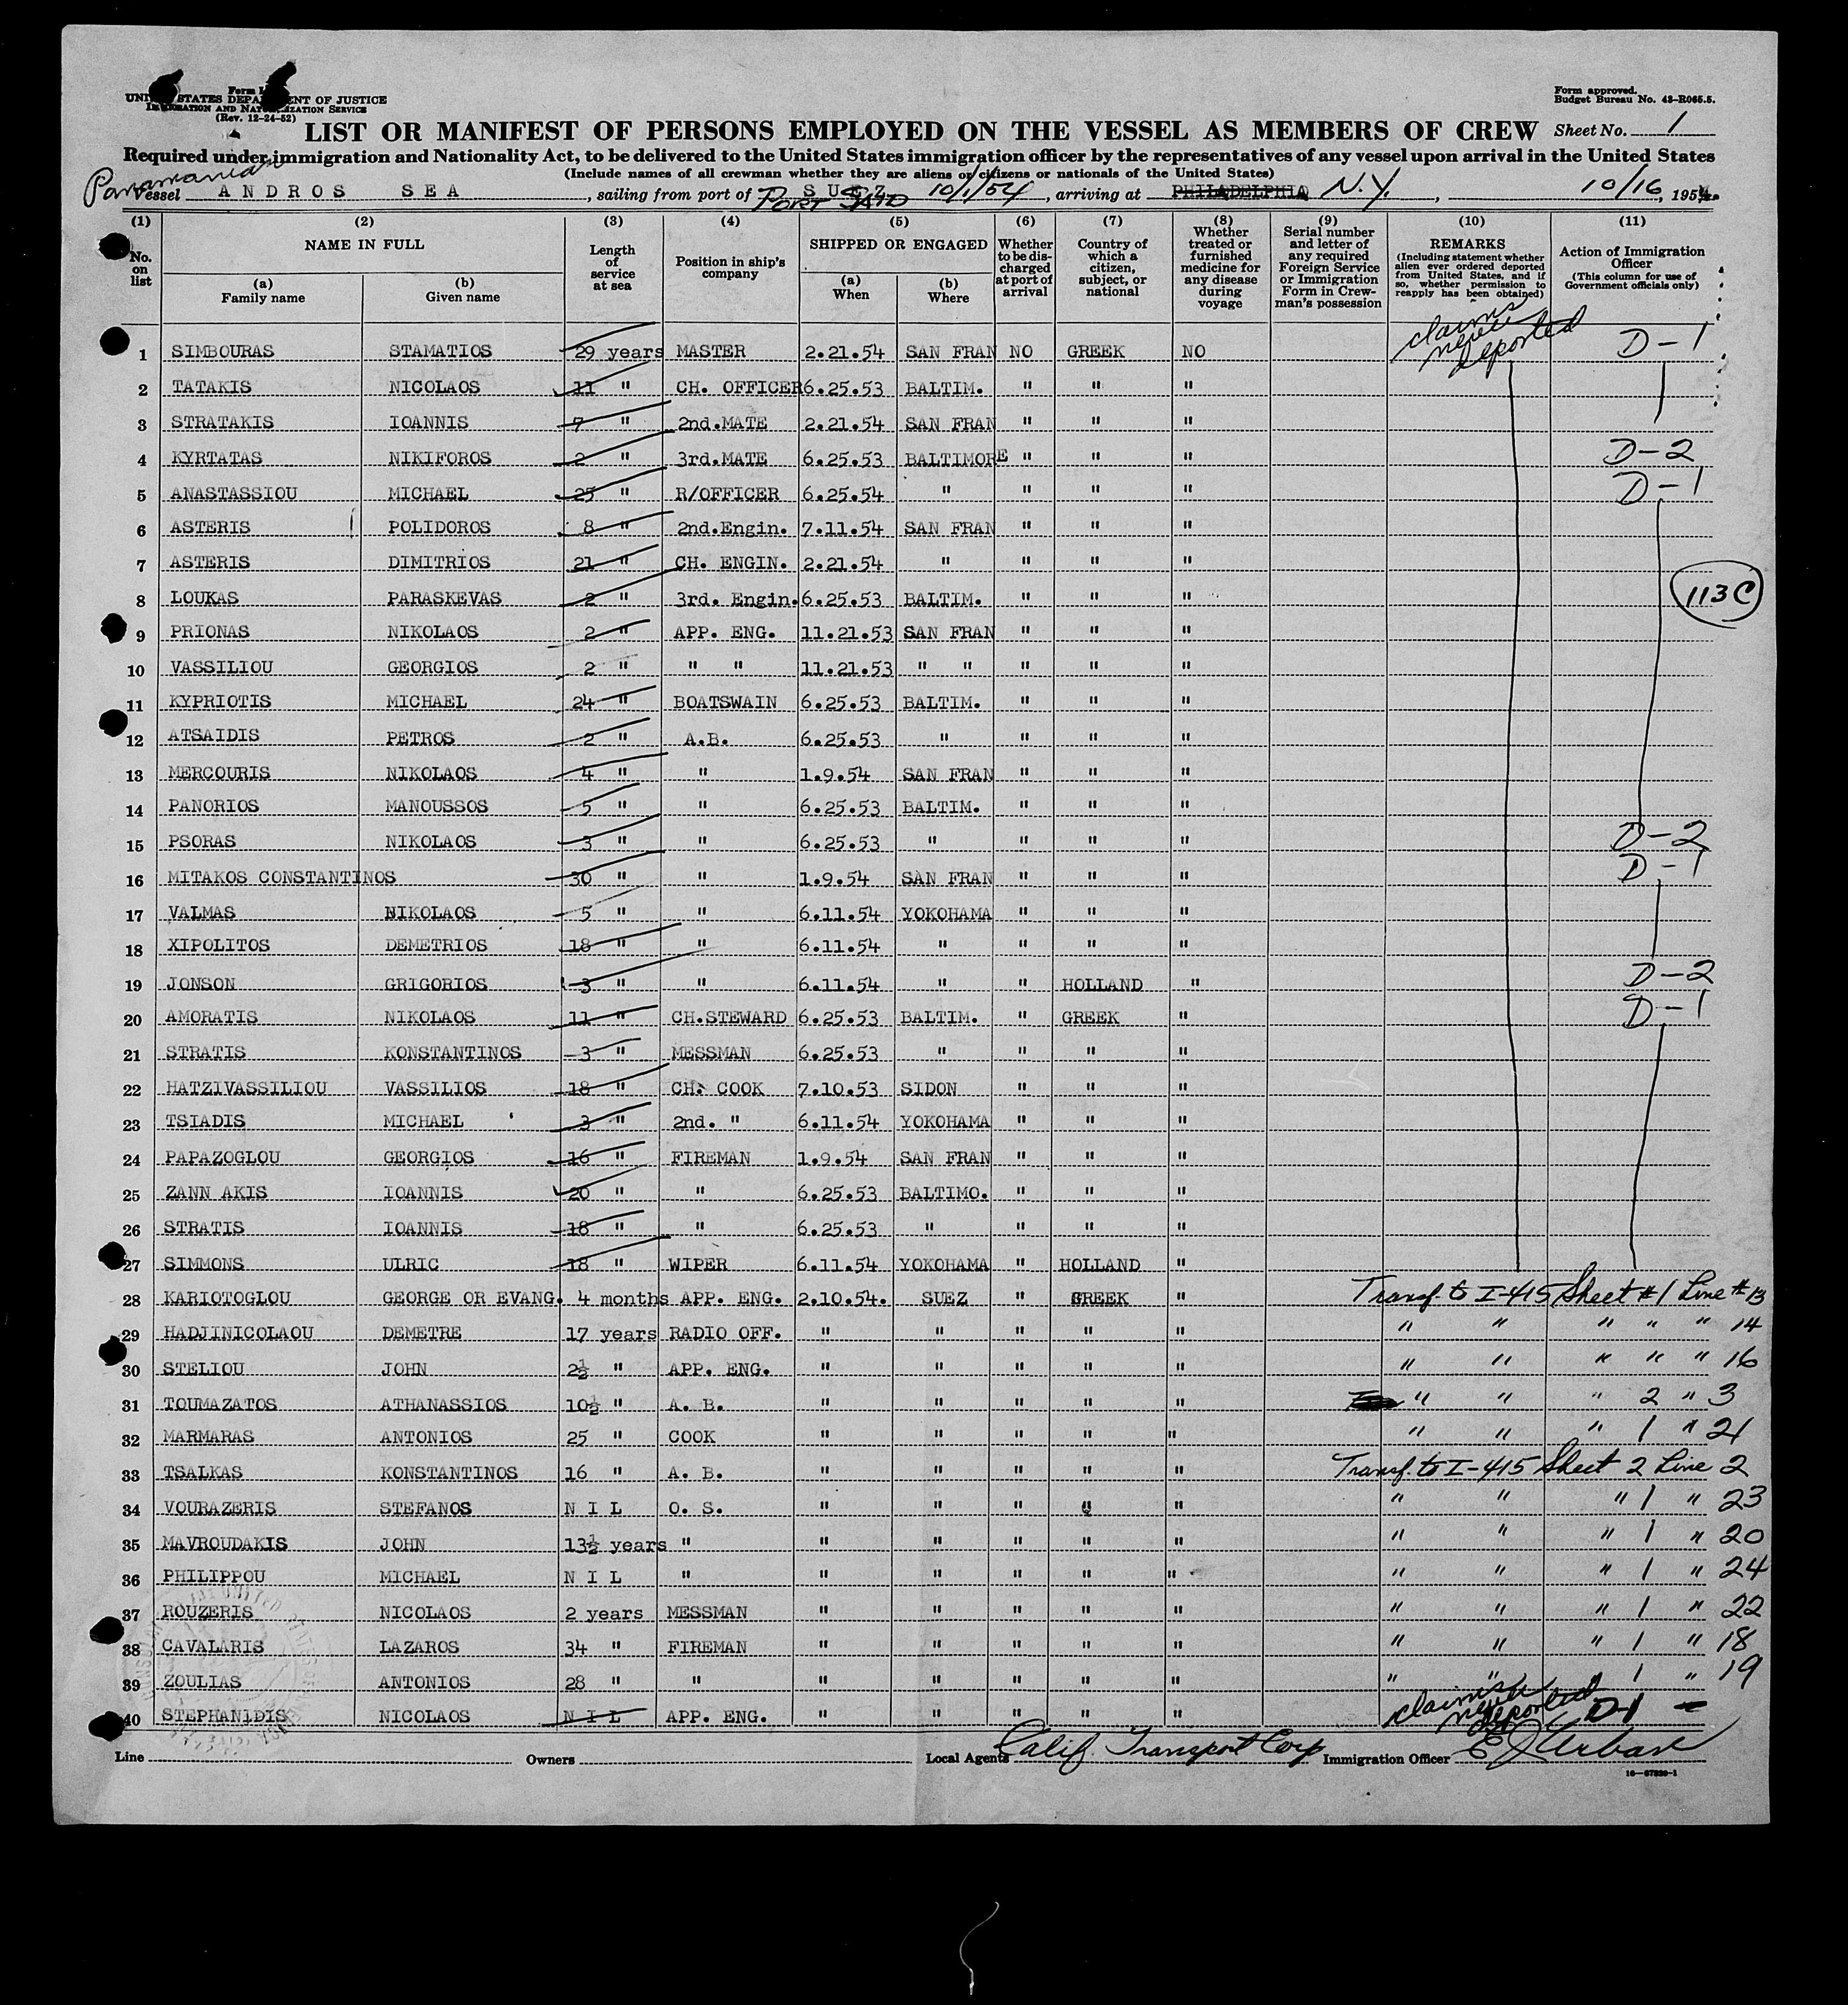 Form
UNITED STATES DEPARTMENT OF JUSTICE
IMMIGRATION AND NATURALIZATION SERVICE
(Rev. 12-24-52)
Form approved.
Budget Bureau No. 43-R065.5.
LIST OR MANIFEST OF PERSONS EMPLOYED ON THE VESSEL AS MEMBERS OF CREW Sheet No. 1
Required under immigration and Nationality Act, to be delivered to the United States immigration officer by the representatives of any vessel upon arrival in the United States
(Include names of all crewman whether they are aliens or citizens or nationals of the United States)
Panamanian
Vessel ANDROS SEA, sailing from port of SUEZ PORT SAID 10/1/54, arriving at PHILADELPHIA N.Y., 10/16, 1954.
(1) (2) (3) (4) (5) (6) (7) (8) (9) (10) (11)
No. on list
NAME IN FULL
(a) Family name
(b) Given name
Length of service at sea
Position in ship's company
SHIPPED OR ENGAGED
(a) When
(b) Where
Whether to be discharged at port of arrival
Country of which a citizen, subject, or national
Whether treated or furnished medicine for any disease during voyage
Serial number and letter of any required Foreign Service or Immigration Form in Crewman's possession
REMARKS
(Including statement whether alien ever ordered deported from United States, and if so, whether permission to reapply has been obtained)
Action of Immigration Officer
(This column for use of Government officials only)
1 SIMBOURAS STAMATIOS 29 years MASTER 2.21.54 SAN FRAN NO GREEK NO claims never deported D-1
2 TATAKIS NICOLAOS 11 " CH. OFFICER 6.25.53 BALTIM. " " "
3 STRATAKIS IOANNIS 7 " 2nd.MATE 2.21.54 SAN FRAN " " "
4 KYRTATAS NIKIFOROS 2 " 3rd.MATE 6.25.53 BALTIMORE " " " D-2
5 ANASTASSIOU MICHAEL 25 " R/OFFICER 6.25.54 " " " " D-1
6 ASTERIS POLIDOROS 8 " 2nd.Engin. 7.11.54 SAN FRAN " " "
7 ASTERIS DIMITRIOS 21 " CH. ENGIN. 2.21.54 " " " "
8 LOUKAS PARASKEVAS 2 " 3rd. Engin. 6.25.53 BALTIM. " " " 113C
9 PRIONAS NIKOLAOS 2 " APP. ENG. 11.21.53 SAN FRAN " " "
10 VASSILIOU GEORGIOS 2 " " " 11.21.53 " " " " "
11 KYPRIOTIS MICHAEL 24 " BOATSWAIN 6.25.53 BALTIM. " " "
12 ATSAIDIS PETROS 2 " A.B. 6.25.53 " " " "
13 MERCOURIS NIKOLAOS 4 " " 1.9.54 SAN FRAN " " "
14 PANORIOS MANOUSSOS 5 " " 6.25.53 BALTIM. " " "
15 PSORAS NIKOLAOS 3 " " 6.25.53 " " " " D-2
16 MITAKOS CONSTANTINOS 30 " " 1.9.54 SAN FRAN " " " D-1
17 VALMAS NIKOLAOS 5 " " 6.11.54 YOKOHAMA " " "
18 XIPOLITOS DEMETRIOS 18 " " 6.11.54 " " " "
19 JONSON GRIGORIOS 3 " " 6.11.54 " " HOLLAND " D-2
20 AMORATIS NIKOLAOS 11 " CH.STEWARD 6.25.53 BALTIM. " GREEK " D-1
21 STRATIS KONSTANTINOS 3 " MESSMAN 6.25.53 " " " "
22 HATZIVASSILIOU VASSILIOS 18 " CH. COOK 7.10.53 SIDON " " "
23 TSIADIS MICHAEL 3 " 2nd. " 6.11.54 YOKOHAMA " " "
24 PAPAZOGLOU GEORGIOS 16 " FIREMAN 1.9.54 SAN FRAN " " "
25 ZANN AKIS IOANNIS 20 " " 6.25.53 BALTIMO. " " "
26 STRATIS IOANNIS 18 " " 6.25.53 " " " "
27 SIMMONS ULRIC 18 " WIPER 6.11.54 YOKOHAMA " HOLLAND "
28 KARIOTOGLOU GEORGE OR EVANG. 4 months APP. ENG. 2.10.54. SUEZ " GREEK " Transf. to I-415 Sheet #1 Line #13
29 HADJINICOLAOU DEMETRE 17 years RADIO OFF. " " " " " " " " " " 14
30 STELIOU JOHN 2½ " APP. ENG. " " " " " " " " " " 16
31 TOUMAZATOS ATHANASSIOS 10½ " A. B. " " " " " " " " 2 " 3
32 MARMARAS ANTONIOS 25 " COOK " " " " " " " " 1 " 21
33 TSALKAS KONSTANTINOS 16 " A. B. " " " " " Transf. to I-415 Sheet 2 Line 2
34 VOURAZERIS STEFANOS NIL O. S. " " " " " " " " 1 " 23
35 MAVROUDAKIS JOHN 13½ years " " " " " " " " " 1 " 20
36 PHILIPPOU MICHAEL NIL " " " " " " " " " 1 " 24
37 ROUZERIS NICOLAOS 2 years MESSMAN " " " " " " " " 1 " 22
38 CAVALARIS LAZAROS 34 " FIREMAN " " " " " " " " 1 " 18
39 ZOULIAS ANTONIOS 28 " " " " " " " " " 1 " 19
40 STEPHANIDIS NICOLAOS NIL APP. ENG. " " " " " claims never deported D-1
Line Owners Local Agents Calif. Transport Corp Immigration Officer E J Urban
16—67820-1